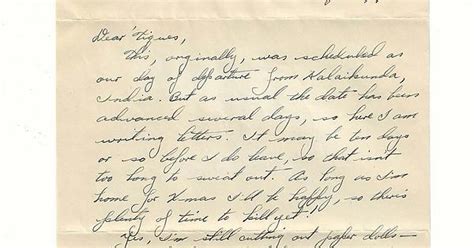 Dear Tigues,
This, originally, was scheduled as
our day of departure from Kalaikunda,
India. But as usual the date has been
advanced several days, so here I am
writing letters. It may be ten days
or so before I do leave, so that isn't
too long to sweat out. As long as I'm
home for Xmas I'll be happy, so there's
plenty of time to kill yet.
Yes, I'm still cutting out paper dolls—